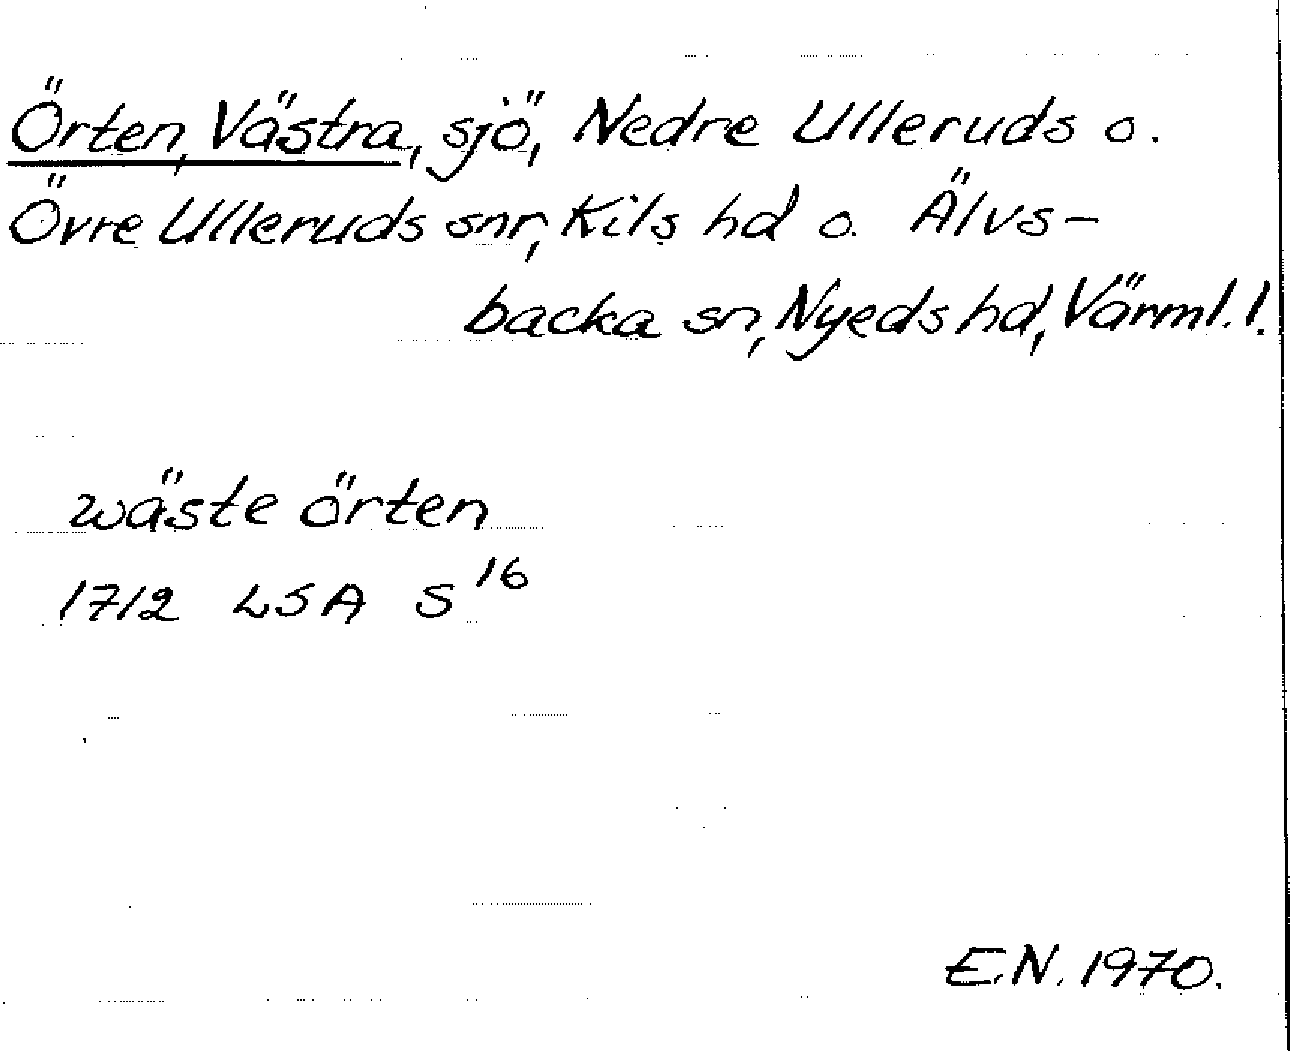 Örten, Västra, sjö, Nedre Ulleruds o.
Övre Ulleruds snr, Kils hd o. Älvs-
backa sn, Nyeds hd, Värml. l.
wäste örten
1712 LSA S 16
E.N. 1970.